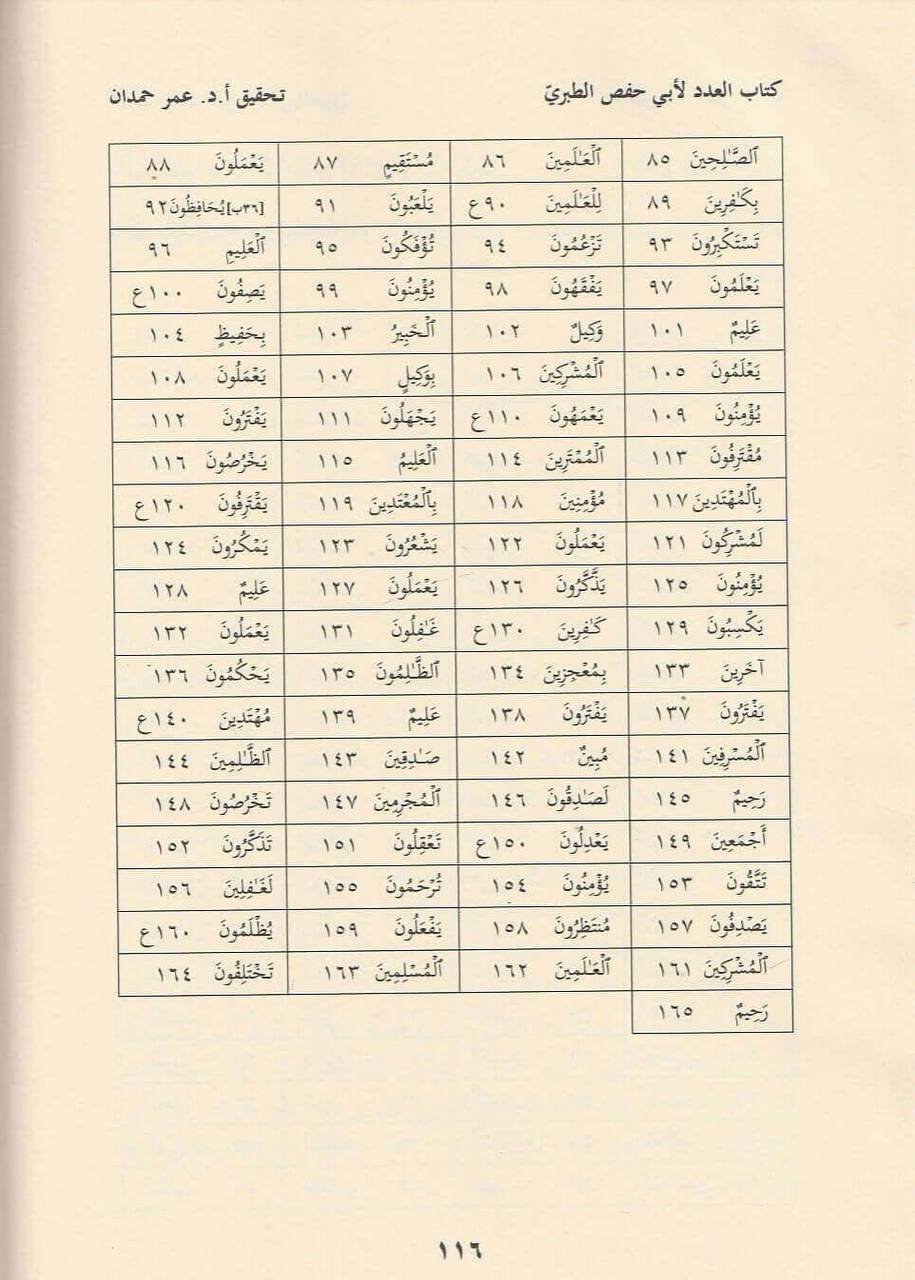 كتاب العدد لأبي حفص الطبريّ تحقيق أ.د. عمر حمدان
ٱلصَّـٰلِحِينَ ٨٥ ٱلْعَـٰلَمِينَ ٨٦ مُسْتَقِيمٍ ٨٧ يَعْمَلُونَ ٨٨
بِكَـٰفِرِينَ ٨٩ لِلْعَـٰلَمِينَ ٩٠ع يَلْعَبُونَ ٩١ [٣٦ب] يُحَافِظُونَ ٩٢
تَسْتَكْبِرُونَ ٩٣ تَزْعُمُونَ ٩٤ تُؤْفَكُونَ ٩٥ ٱلْعَلِيمِ ٩٦
يَعْلَمُونَ ٩٧ يَفْقَهُونَ ٩٨ يُؤْمِنُونَ ٩٩ يَصِفُونَ ١٠٠ع
عَلِيمٌ ١٠١ وَكِيلٌ ١٠٢ ٱلْخَبِيرُ ١٠٣ بِحَفِيظٍ ١٠٤
يَعْلَمُونَ ١٠٥ ٱلْمُشْرِكِينَ ١٠٦ بِوَكِيلٍ ١٠٧ يَعْمَلُونَ ١٠٨
يُؤْمِنُونَ ١٠٩ يَعْمَهُونَ ١١٠ع يَجْهَلُونَ ١١١ يَفْتَرُونَ ١١٢
مُقْتَرِفُونَ ١١٣ ٱلْمُمْتَرِينَ ١١٤ ٱلْعَلِيمُ ١١٥ يَخْرُصُونَ ١١٦
بِٱلْمُهْتَدِينَ ١١٧ مُؤْمِنِينَ ١١٨ بِٱلْمُعْتَدِينَ ١١٩ يَقْتَرِفُونَ ١٢٠ع
لَمُشْرِكُونَ ١٢١ يَعْمَلُونَ ١٢٢ يَشْعُرُونَ ١٢٣ يَمْكُرُونَ ١٢٤
يُؤْمِنُونَ ١٢٥ يَذَّكَّرُونَ ١٢٦ يَعْمَلُونَ ١٢٧ عَلِيمٌ ١٢٨
يَكْسِبُونَ ١٢٩ كَـٰفِرِينَ ١٣٠ع غَـٰفِلُونَ ١٣١ يَعْمَلُونَ ١٣٢
آخَرِينَ ١٣٣ بِمُعْجِزِينَ ١٣٤ ٱلظَّـٰلِمُونَ ١٣٥ يَحْكُمُونَ ١٣٦
يَفْتَرُونَ ١٣٧ يَفْتَرُونَ ١٣٨ عَلِيمٌ ١٣٩ مُهْتَدِينَ ١٤٠ع
ٱلْمُسْرِفِينَ ١٤١ مُبِينٌ ١٤٢ صَـٰدِقِينَ ١٤٣ ٱلظَّـٰلِمِينَ ١٤٤
رَحِيمٌ ١٤٥ لَصَـٰدِقُونَ ١٤٦ ٱلْمُجْرِمِينَ ١٤٧ تَخْرُصُونَ ١٤٨
أَجْمَعِينَ ١٤٩ يَعْدِلُونَ ١٥٠ع تَعْقِلُونَ ١٥١ تَذَكَّرُونَ ١٥٢
تَتَّقُونَ ١٥٣ يُؤْمِنُونَ ١٥٤ تُرْحَمُونَ ١٥٥ لَغَـٰفِلِينَ ١٥٦
يَصْدِفُونَ ١٥٧ مُنتَظِرُونَ ١٥٨ يَفْعَلُونَ ١٥٩ يُظْلَمُونَ ١٦٠ع
ٱلْمُشْرِكِينَ ١٦١ ٱلْعَـٰلَمِينَ ١٦٢ ٱلْمُسْلِمِينَ ١٦٣ تَخْتَلِفُونَ ١٦٤
رَحِيمٌ ١٦٥
١١٦